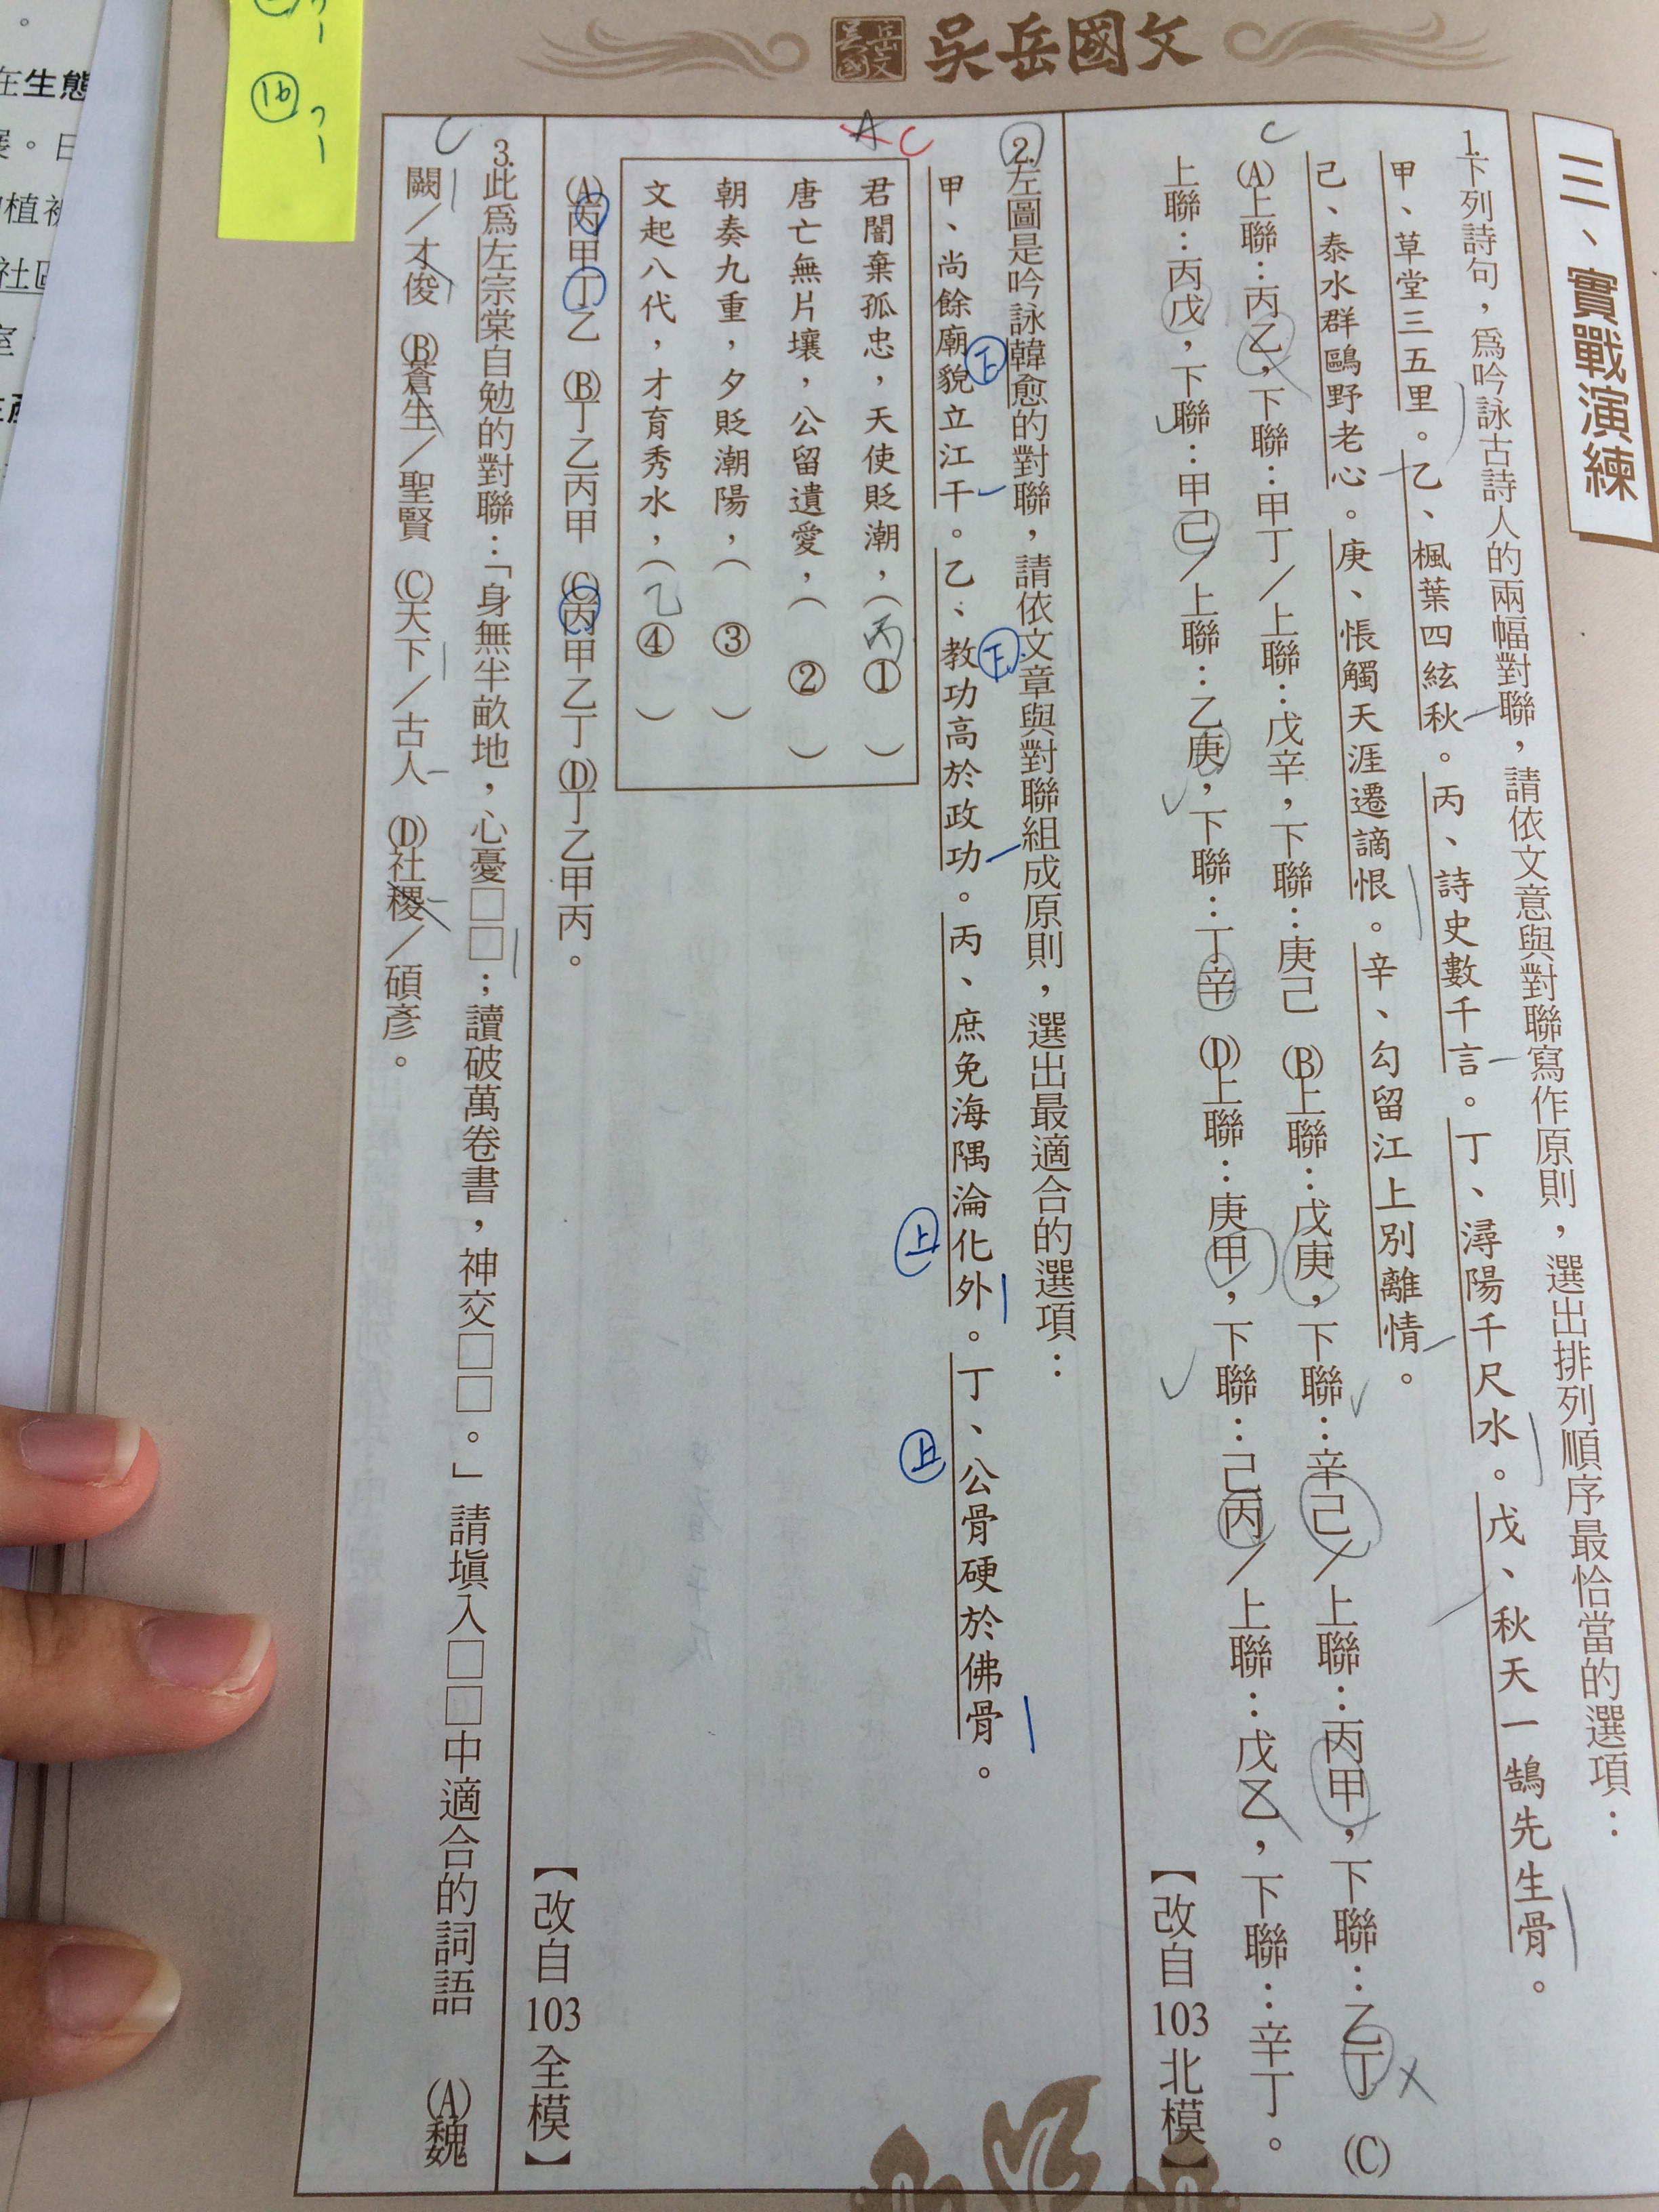 吳岳國文
三、實戰演練
1.下列詩句，為吟詠古詩人的兩幅對聯，請依文意與對聯寫作原則，選出排列順序最恰當的選項：
甲、草堂三五里。乙、楓葉四絃秋。丙、詩史數千言。丁、潯陽千尺水。戊、秋天一鵠先生骨。
己、泰水群鷗野老心。庚、悵觸天涯遷謫恨。辛、勾留江上別離情。
C
(A)上聯：丙乙，下聯：甲丁／上聯：戊辛，下聯：庚己　(B)上聯：戊庚，下聯：辛己／上聯：丙甲，下聯：乙丁　(C)
上聯：丙戊，下聯：甲己／上聯：乙庚，下聯：丁辛　(D)上聯：庚甲，下聯：己丙／上聯：戊乙，下聯：辛丁。
【改自103北模】
2.左圖是吟詠韓愈的對聯，請依文章與對聯組成原則，選出最適合的選項：
甲、尚餘廟貌立江干。乙、教功高於政功。丙、庶免海隅淪化外。丁、公骨硬於佛骨。
下
下
上
上
A C
君闇棄孤忠，天使貶潮，（丙①　）
唐亡無片壤，公留遺愛，（　②　）
朝奏九重，夕貶潮陽，（　③　）
文起八代，才育秀水，（乙④　）
(A)丙甲丁乙　(B)丁乙丙甲　(C)丙甲乙丁　(D)丁乙甲丙。
【改自103全模】
C
3.此為左宗棠自勉的對聯：「身無半畝地，心憂□□；讀破萬卷書，神交□□。」請填入□□中適合的詞語　(A)魏
闕／才俊　(B)蒼生／聖賢　(C)天下／古人　(D)社稷／碩彥。
16
在生態
植被
社區